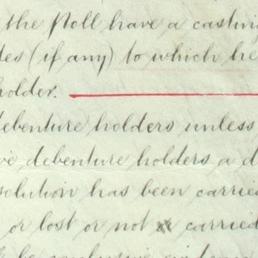 the Poll have a casting
tes (if any) to which he
holder.
debenture holders unless
ve debenture holders a d
solution has been carried
or lost or not carried